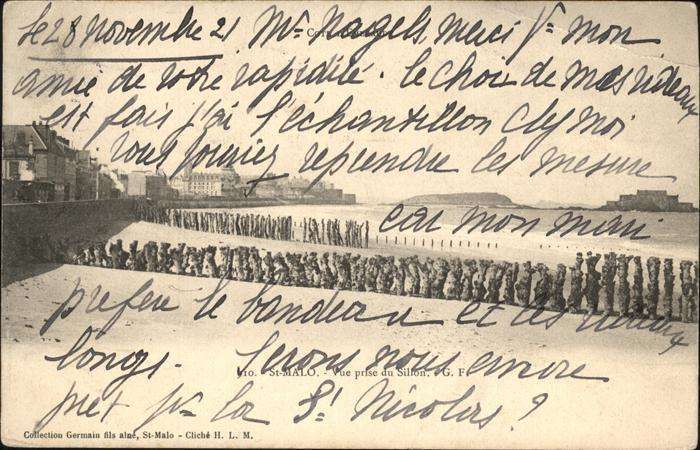 le 28 novembre 21 Mr Nagels merci pr mon
amie de votre rapidité. le choix de mes rideaux
est fais j'ai l'échantillon chez moi
vous pouviez reprendre les mesure
car mon mari
prefere le bandeau et les rideaux
longs. Serons nous encore
pret pr la St Nicolas ?
110. - St-MALO. - Vue prise du Sillon. - G. F.
Collection Germain fils aîné, St-Malo - Cliché H. L. M.